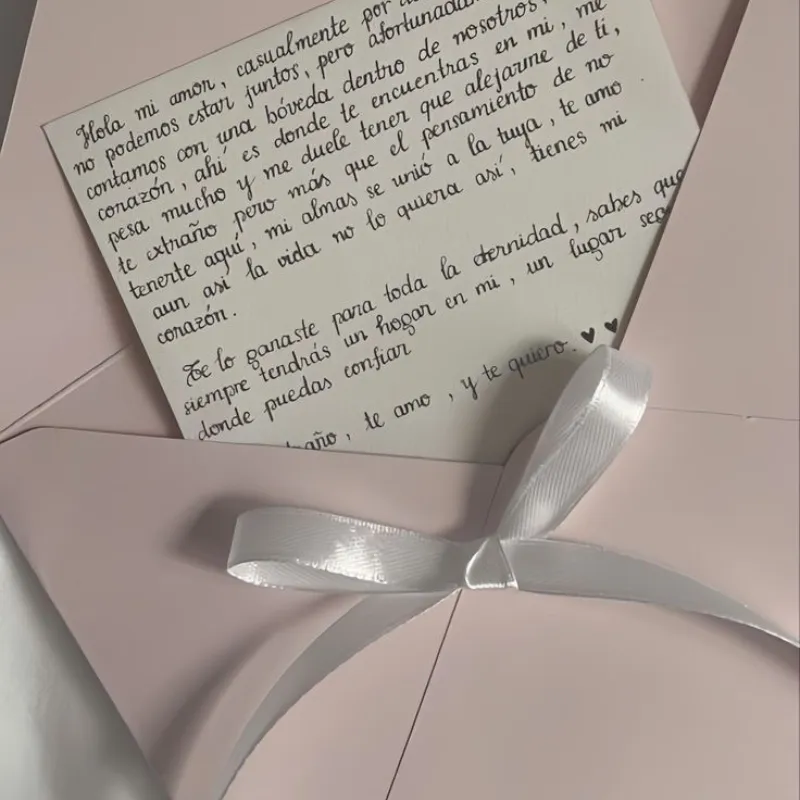 Hola mi amor, casualmente por
no podemos estar juntos, pero afortunadamente
contamos con una bóveda dentro de nosotros,
corazón, ahí es donde te encuentras en mi, me
pesa mucho y me duele tener que alejarme de ti,
te extraño pero más que el pensamiento de no
tenerte aquí, mi almas se unió a la tuya, te amo
aun asi la vida no lo quiera así, tienes mi
corazón.
Te lo ganaste para toda la eternidad, sabes que
siempre tendrás un hogar en mi, un lugar
donde puedas confiar
te amo, y te quiero. ♥ ♥